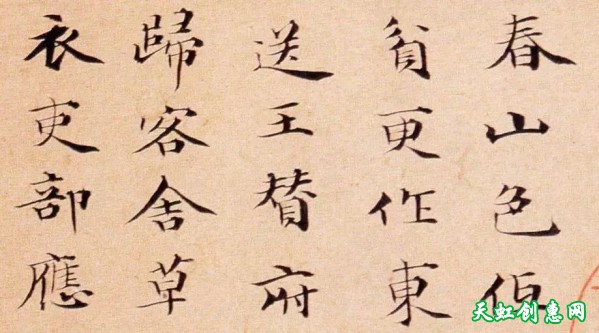 春山色佰
貧更作東
送王贊府
歸客舍草
衣吏部應
天虹创惠网